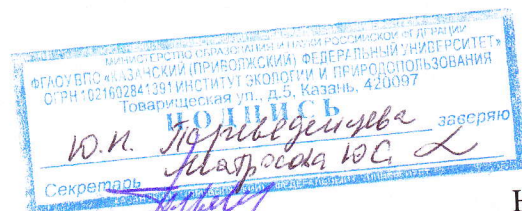 МИНИСТЕРСТВО ОБРАЗОВАНИЯ И НАУКИ РОССИЙСКОЙ ФЕДЕРАЦИИ
ФГАОУ ВПО «КАЗАНСКИЙ (ПРИВОЛЖСКИЙ) ФЕДЕРАЛЬНЫЙ УНИВЕРСИТЕТ»
ОГРН 1021602841391 ИНСТИТУТ ЭКОЛОГИИ И ПРИРОДОПОЛЬЗОВАНИЯ
Товарищеская ул., д.5, Казань, 420097
ПОДПИСЬ
Ю.П. заверяю
Секретарь Матросова Ю.С.